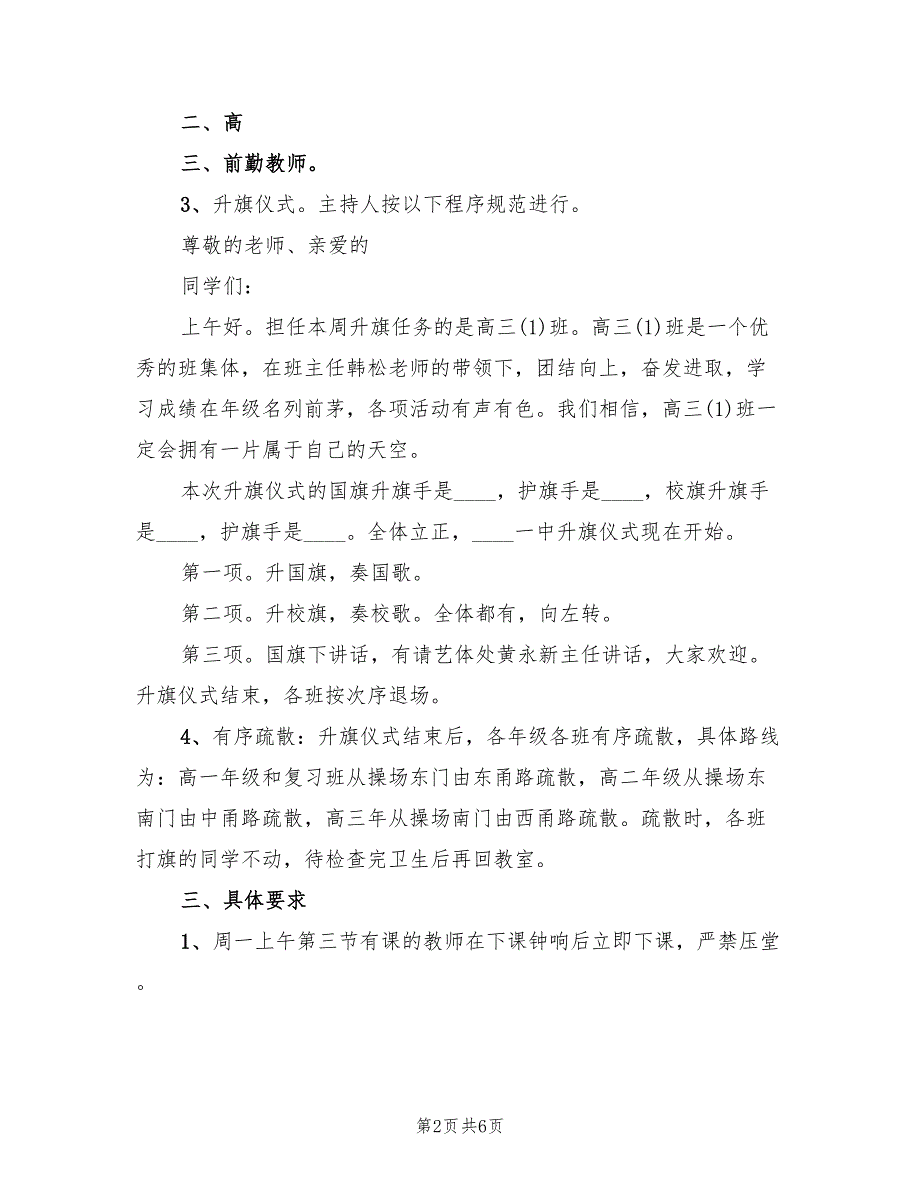 二、高
三、前勤教师。
3、升旗仪式。主持人按以下程序规范进行。
尊敬的老师、亲爱的
同学们：
上午好。担任本周升旗任务的是高三(1)班。高三(1)班是一个优
秀的班集体，在班主任韩松老师的带领下，团结向上，奋发进取，学
习成绩在年级名列前茅，各项活动有声有色。我们相信，高三(1)班一
定会拥有一片属于自己的天空。
本次升旗仪式的国旗升旗手是____，护旗手是____，校旗升旗手
是____，护旗手是____。全体立正，____一中升旗仪式现在开始。
第一项。升国旗，奏国歌。
第二项。升校旗，奏校歌。全体都有，向左转。
第三项。国旗下讲话，有请艺体处黄永新主任讲话，大家欢迎。
升旗仪式结束，各班按次序退场。
4、有序疏散：升旗仪式结束后，各年级各班有序疏散，具体路线
为：高一年级和复习班从操场东门由东甬路疏散，高二年级从操场东
南门由中甬路疏散，高三年从操场南门由西甬路疏散。疏散时，各班
打旗的同学不动，待检查完卫生后再回教室。
三、具体要求
1、周一上午第三节有课的教师在下课钟响后立即下课，严禁压堂
。
第2页 共6页